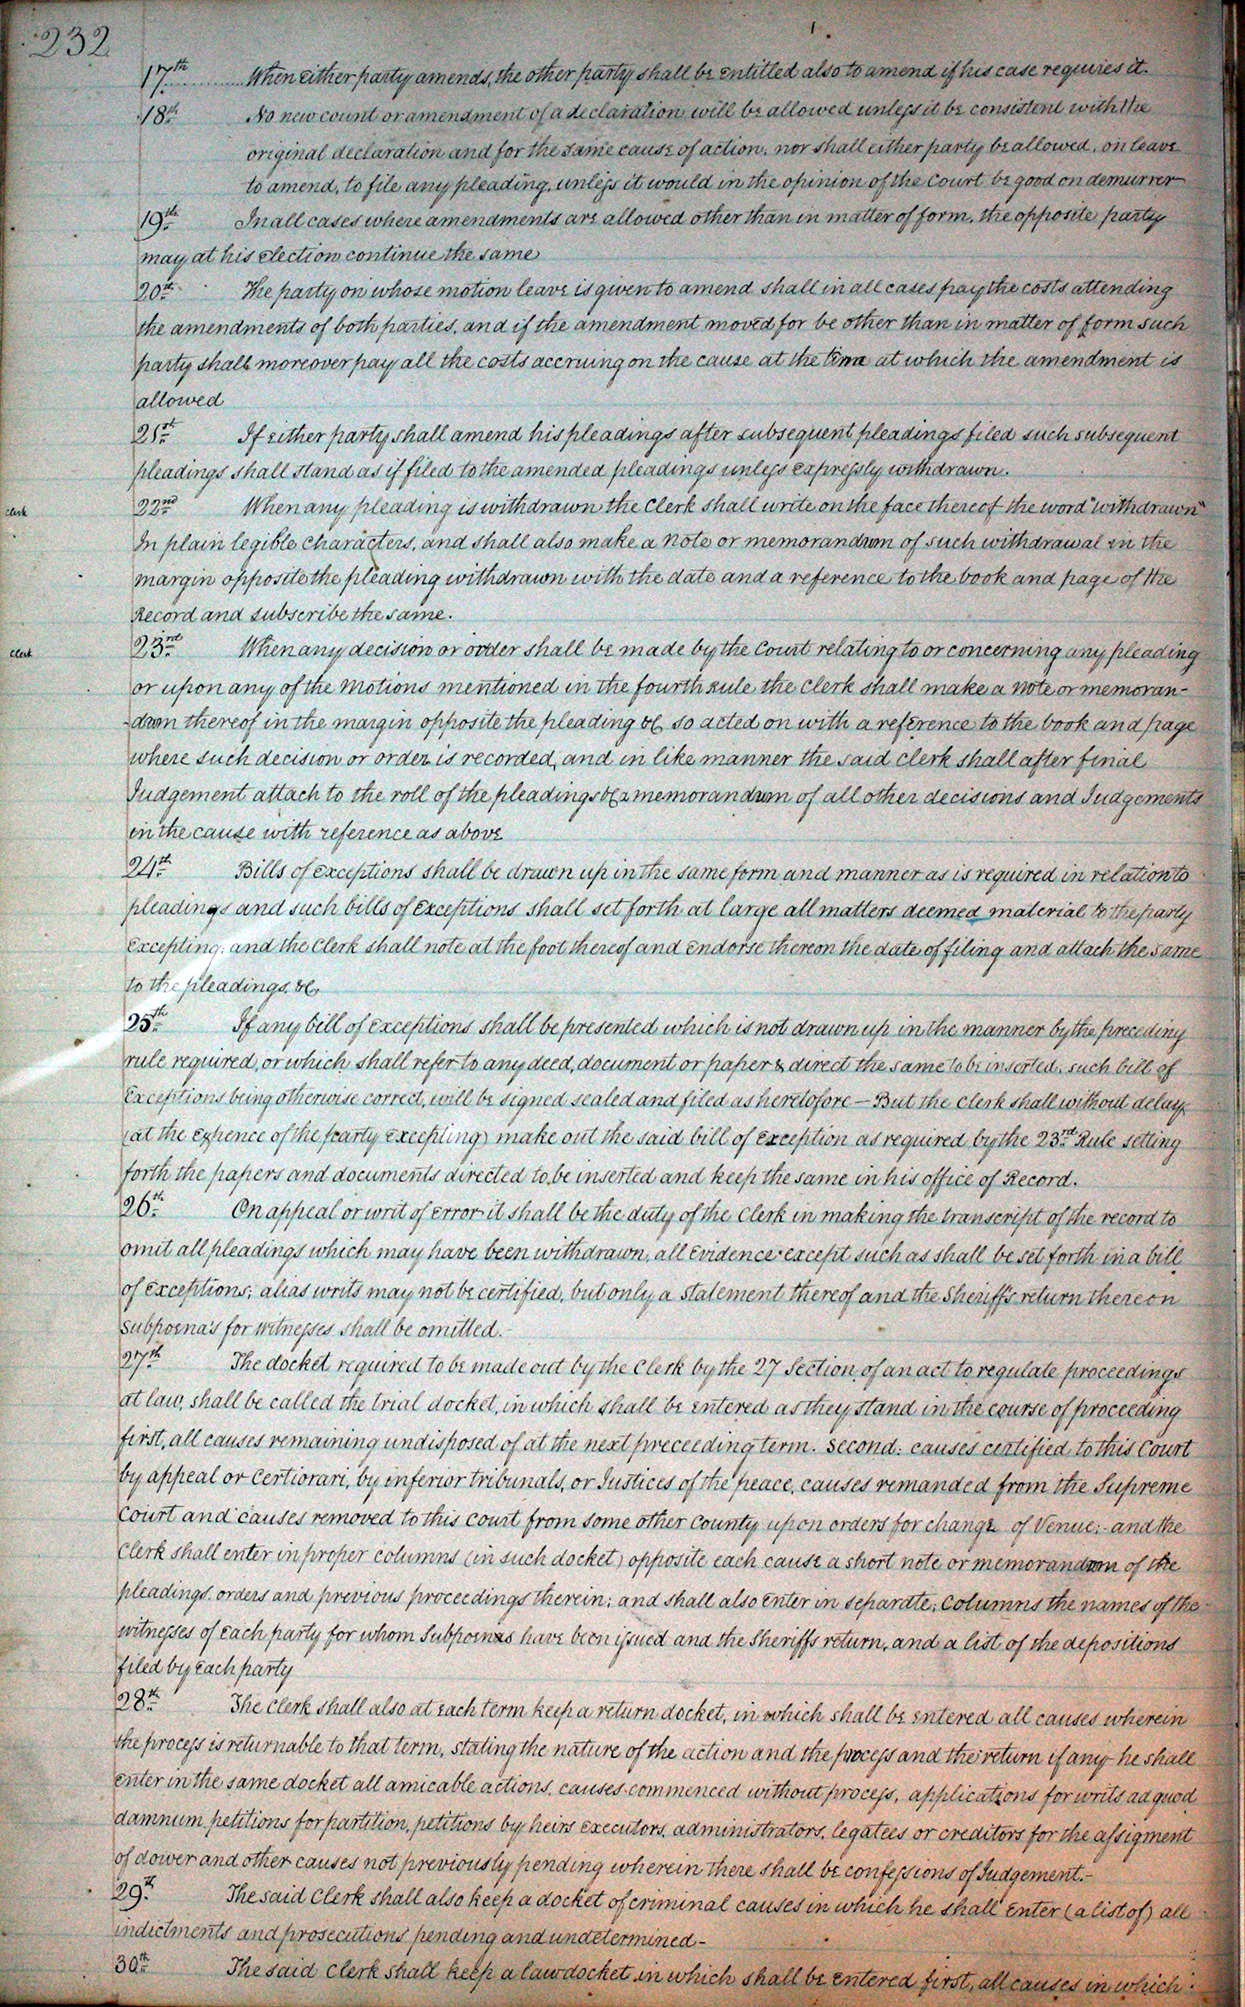 232
17th When either party amends, the other party shall be entitled also to amend if his case requires it.
18th No new count or amendment of a declaration will be allowed unless it be consistent with the
original declaration and for the same cause of action, nor shall either party be allowed, on leave
to amend, to file any pleading, unless it would in the opinion of the Court be good on demurrer
19th In all cases where amendments are allowed other than in matter of form, the opposite party
may at his election continue the same
20th The party on whose motion leave is given to amend shall in all cases pay the costs attending
the amendments of both parties, and if the amendment moved for be other than in matter of form such
party shall moreover pay all the costs accruing on the cause at the time at which the amendment is
allowed
21st If either party shall amend his pleadings after subsequent pleadings filed such subsequent
pleadings shall stand as if filed to the amended pleadings unless expressly withdrawn.
Clerk 22nd When any pleading is withdrawn the Clerk shall write on the face thereof the word "withdrawn"
In plain legible characters, and shall also make a note or memorandum of such withdrawal in the
margin opposite the pleading withdrawn with the date and a reference to the book and page of the
Record and subscribe the same.
Clerk 23rd When any decision or order shall be made by the Court relating to or concerning any pleading
or upon any of the Motions mentioned in the fourth Rule the Clerk shall make a note or memoran-
-dum thereof in the margin opposite the pleading &c so acted on with a reference to the book and page
where such decision or order is recorded, and in like manner the said clerk shall after final
Judgement attach to the roll of the pleadings &c a memorandum of all other decisions and Judgements
in the cause with reference as above
24th Bills of exceptions shall be drawn up in the same form and manner as is required in relation to
pleadings and such bills of exceptions shall set forth at large all matters deemed material to the party
excepting; and the Clerk shall note at the foot thereof and endorse thereon the date of filing and attach the same
to the pleadings, &c.
25th If any bill of exceptions shall be presented which is not drawn up in the manner by the preceding
rule required, or which shall refer to any deed, document or paper & direct the same to be inserted, such bill of
exceptions being otherwise correct, will be signed sealed and filed as heretofore – But the Clerk shall without delay
(at the expence of the party excepting) make out the said bill of exception as required by the 23rd Rule setting
forth the papers and documents directed to be inserted and keep the same in his office of Record.
26th On appeal or writ of error it shall be the duty of the Clerk in making the transcript of the record to
omit all pleadings which may have been withdrawn, all evidence except such as shall be set forth in a bill
of exceptions; alias writs may not be certified, but only a statement thereof and the Sheriff's return thereon
subpoena's for witnesses shall be omitted.
27th The docket required to be made out by the Clerk by the 27 Section of an act to regulate proceedings
at law, shall be called the trial docket, in which shall be entered as they stand in the course of proceeding
first, all causes remaining undisposed of at the next preceeding term. second: causes certified to this Court
by appeal or certiorari, by inferior tribunals, or Justices of the peace, causes remanded from the Supreme
Court and causes removed to this court from some other County upon orders for change of Venue; and the
Clerk shall enter in proper columns (in such docket) opposite each cause a short note or memorandum of the
pleadings, orders and previous proceedings therein; and shall also enter in separate, columns the names of the
witnesses of each party for whom Subpoenas have been issued and the Sheriffs return, and a list of the depositions
filed by each party
28th The Clerk shall also at each term keep a return docket, in which shall be entered all causes wherein
the process is returnable to that term, stating the nature of the action and the process and the return if any he shall
enter in the same docket all amicable actions, causes commenced without process, applications for writs ad quod
damnum, petitions for partition, petitions by heirs executors, administrators, legatees or creditors for the assigment
of dower and other causes not previously pending wherein there shall be confessions of Judgement.-
29th The said Clerk shall also keep a docket of criminal causes in which he shall enter (a list of) all
indictments and prosecutions pending and undetermined -
30th The said clerk shall keep a law docket in which shall be entered first, all causes in which